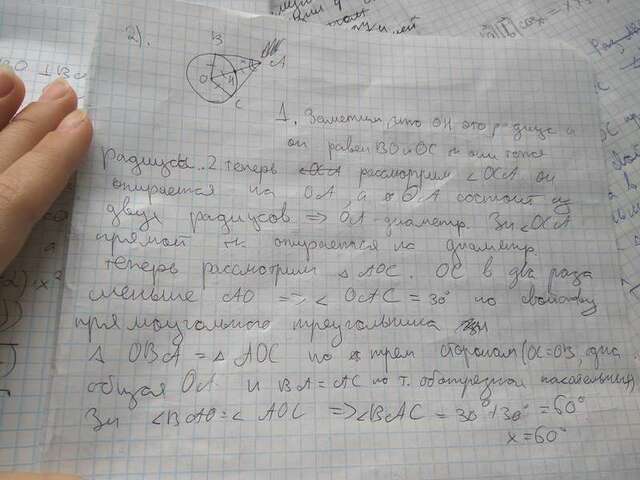 2).
B
A
O
4
C
1. Заметим, что OH это радиус и
он равен BO и OC т.к они тоже
радиусы. 2 теперь рассмотрим ∠OCA. он
опирается на OA, а OA состоит из
двух радиусов ⇒ OA-диаметр. Зн ∠OCA
прямой т.к опирается на диаметр.
теперь рассмотрим △ AOC. OC в два раза
меньше AO => ∠ OAC = 30° по свойству
прямоугольного треугольника
△ OBA = △ AOC по трем сторонам (OC=OB,
общая OA и BA = AC по т. об отрезках касательных)
Зн ∠BAO = ∠ AOC => ∠BAC = 30°+30° = 60°
x = 60°